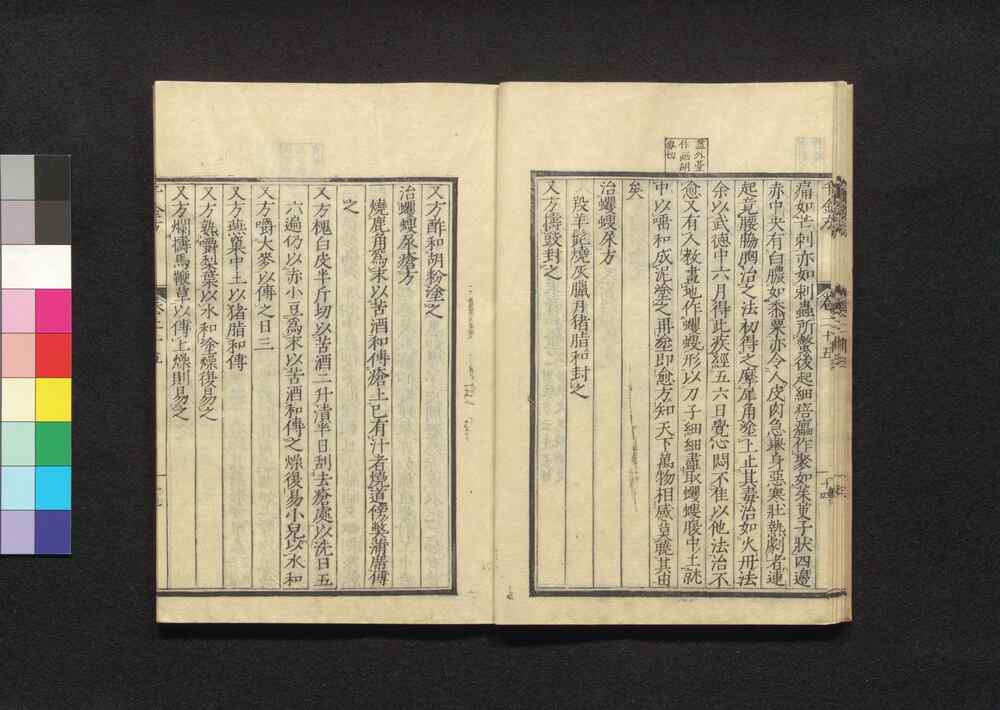 痛如芒刺亦如刺蟲所螫後起細㾦㿔作聚如茱萸子狀四邊
赤中央有白膿如黍粟亦令人皮肉急舉身惡寒壯熱劇者連
起竟腰脇胸治之法初得之磨犀角塗上止其毒治如火丹法
余以武德中六月得此疾經五六日覺心悶不佳以他法治不
愈又有人教畫地作蠼螋形以刀子細細盡取蠼螋腹中土就
中以唾和成泥塗之再塗即愈方知天下萬物相感莫曉其由
矣
治蠼螋尿方
羖羊髭燒灰臘月猪脂和封之
又方擣豉封之
又方酢和胡粉塗之
治蠼螋尿瘡方
燒鹿角爲末以苦酒和傅瘡上已有汁者燒道傍弊蒲席傅
之
又方槐白皮半斤切以苦酒二升漬半日刮去瘡處以洗日五
六遍仍以赤小豆爲末以苦酒和傅之燥復易小兒以水和
又方嚼大麥以傅之日三
又方燕窠中土以猪脂和傅
又方熟嚼梨葉以水和塗燥復易之
又方爛擣馬鞭草以傅上燥則易之